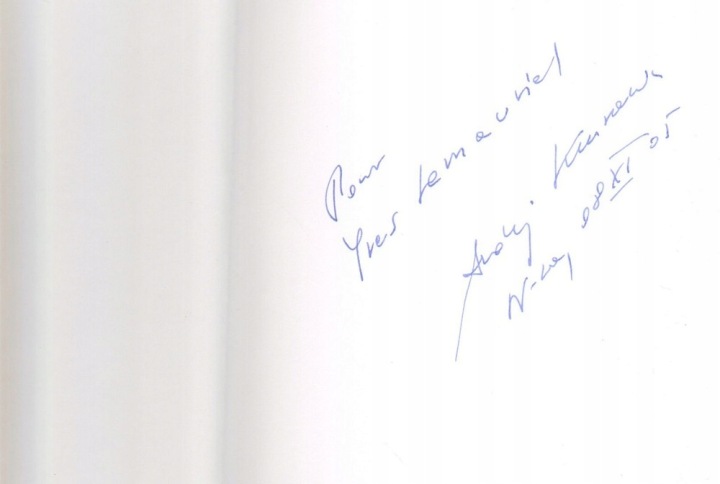 Pour
Yves Lemauviel
Andrzej Kurzawa
08 XI 05